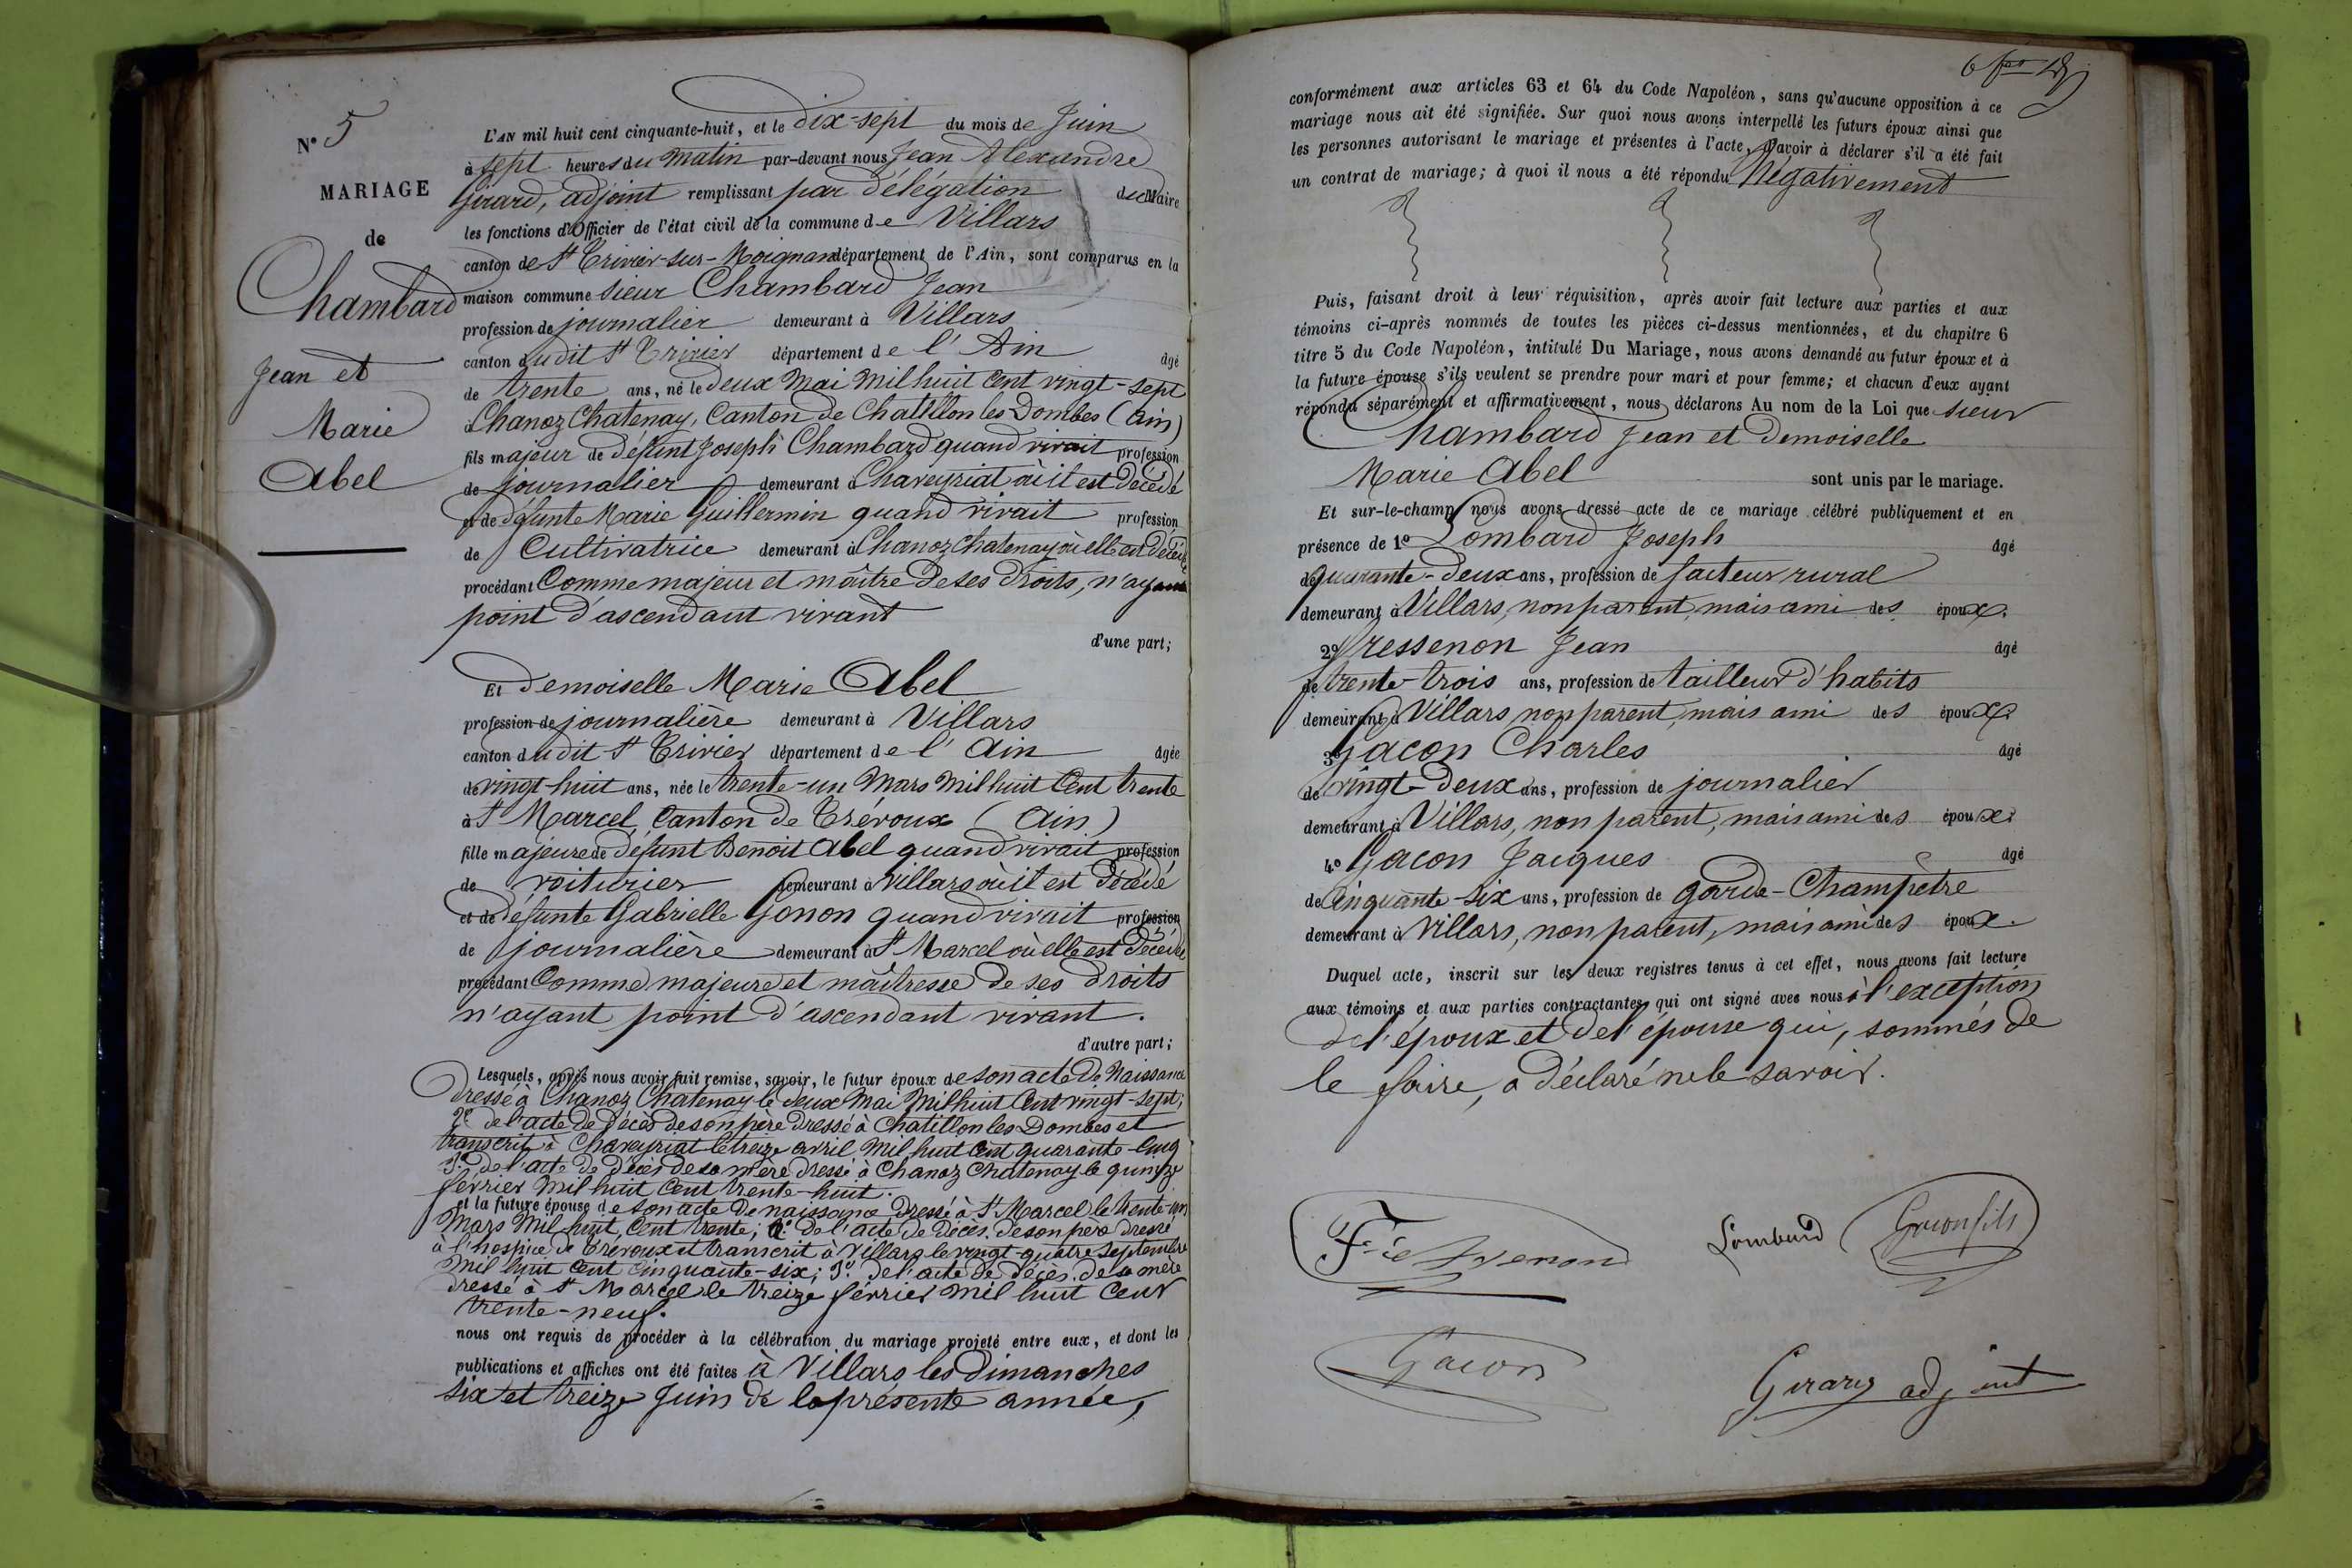 N° 5
MARIAGE
de
Chambard
Jean et
Marie
Abel
L'AN mil huit cent cinquante-huit, et le dix-sept du mois de Juin
à sept heures du matin par-devant nous Jean Alexandre
Girard, adjoint remplissant par délégation du Maire
les fonctions d'Officier de l'état civil de la commune de Villars
canton de St Trivier-sur-Moignans département de l'Ain, sont comparus en la
maison commune sieur Chambard Jean
profession de journalier demeurant à Villars
canton dudit St Trivier département de l'Ain âgé
de trente ans, né le deux Mai mil huit Cent vingt-sept
à Chanoz Chatenay, Canton de Chatillon les Dombes (Ain)
fils majeur de défunt Joseph Chambard quand vivait profession
de journalier demeurant à Chaveyriat où il est décédé
et de défunte Marie Guillermin quand vivait profession
de Cultivatrice demeurant à Chanoz Chatenay où elle est décédée
procédant Comme majeur et maître de ses droits, n'ayant
point d'ascendant vivant
d'une part;
Et demoiselle Marie Abel
profession de journalière demeurant à Villars
canton dudit St Trivier département de l'Ain âgée
de vingt-huit ans, née le trente-un Mars mil huit Cent trente
à St Marcel, Canton de Trévoux (Ain)
fille majeure de défunt Benoit Abel quand vivait profession
de voiturier demeurant à Villars où il est décédé
et de défunte Gabrielle Gonon quand vivait profession
de journalière demeurant à St Marcel où elle est décédée
procédant Comme majeure et maîtresse de ses droits
n'ayant point d'ascendant vivant.
d'autre part;
Lesquels, après nous avoir fait remise, savoir, le futur époux de son acte de Naissance
dressé à Chanoz Chatenay le deux Mai Mil huit Cent vingt-sept;
2° de l'acte de décès de son père dressé à Chatillon les Dombes et
transcrit à Chaveyriat le treize avril Mil huit Cent quarante-cinq
3° de l'acte de décès de sa mère dressé à Chanoz Chatenay le quinze
février Mil huit Cent trente-huit.
et la future épouse de son acte de naissance dressé à St Marcel le trente-un
Mars Mil huit Cent trente; 2° de l'acte de décès de son père dressé
à l'hospice de Trévoux et transcrit à Villars le vingt-quatre Septembre
Mil huit Cent cinquante-six; 3° de l'acte de décès de sa mère
dressé à St Marcel le treize février Mil huit Cent
trente-neuf.
nous ont requis de procéder à la célébration du mariage projeté entre eux, et dont les
publications et affiches ont été faites à Villars les Dimanches
six et treize Juin de la présente année,
conformément aux articles 63 et 64 du Code Napoléon, sans qu'aucune opposition à ce
mariage nous ait été signifiée. Sur quoi nous avons interpellé les futurs époux ainsi que
les personnes autorisant le mariage et présentes à l'acte, d'avoir à déclarer s'il a été fait
un contrat de mariage; à quoi il nous a été répondu Négativement
Puis, faisant droit à leur réquisition, après avoir fait lecture aux parties et aux
témoins ci-après nommés de toutes les pièces ci-dessus mentionnées, et du chapitre 6
titre 5 du Code Napoléon, intitulé Du Mariage, nous avons demandé au futur époux et à
la future épouse s'ils veulent se prendre pour mari et pour femme; et chacun d'eux ayant
répondu séparément et affirmativement, nous déclarons Au nom de la Loi que sieur
Chambard Jean et Demoiselle
Marie Abel sont unis par le mariage.
Et sur-le-champ nous avons dressé acte de ce mariage célébré publiquement et en
présence de 1° Lombard Joseph âgé
de quarante-deux ans, profession de facteur rural
demeurant à Villars, non parent, mais ami des époux.
2° Fressenon Jean âgé
de trente-trois ans, profession de tailleur d'habits
demeurant à Villars non parent, mais ami des époux.
3° Gacon Charles âgé
de vingt-deux ans, profession de journalier
demeurant à Villars, non parent, mais ami des époux.
4° Gacon Jacques âgé
de Cinquante-six ans, profession de garde-Champêtre
demeurant à Villars, non parent, mais ami des époux.
Duquel acte, inscrit sur les deux registres tenus à cet effet, nous avons fait lecture
aux témoins et aux parties contractantes, qui ont signé avec nous à l'exception
de l'époux et de l'épouse qui, sommés de
le faire, a déclaré ne le savoir.
Lombard Gacon fils
Gacon
Girard adjoint